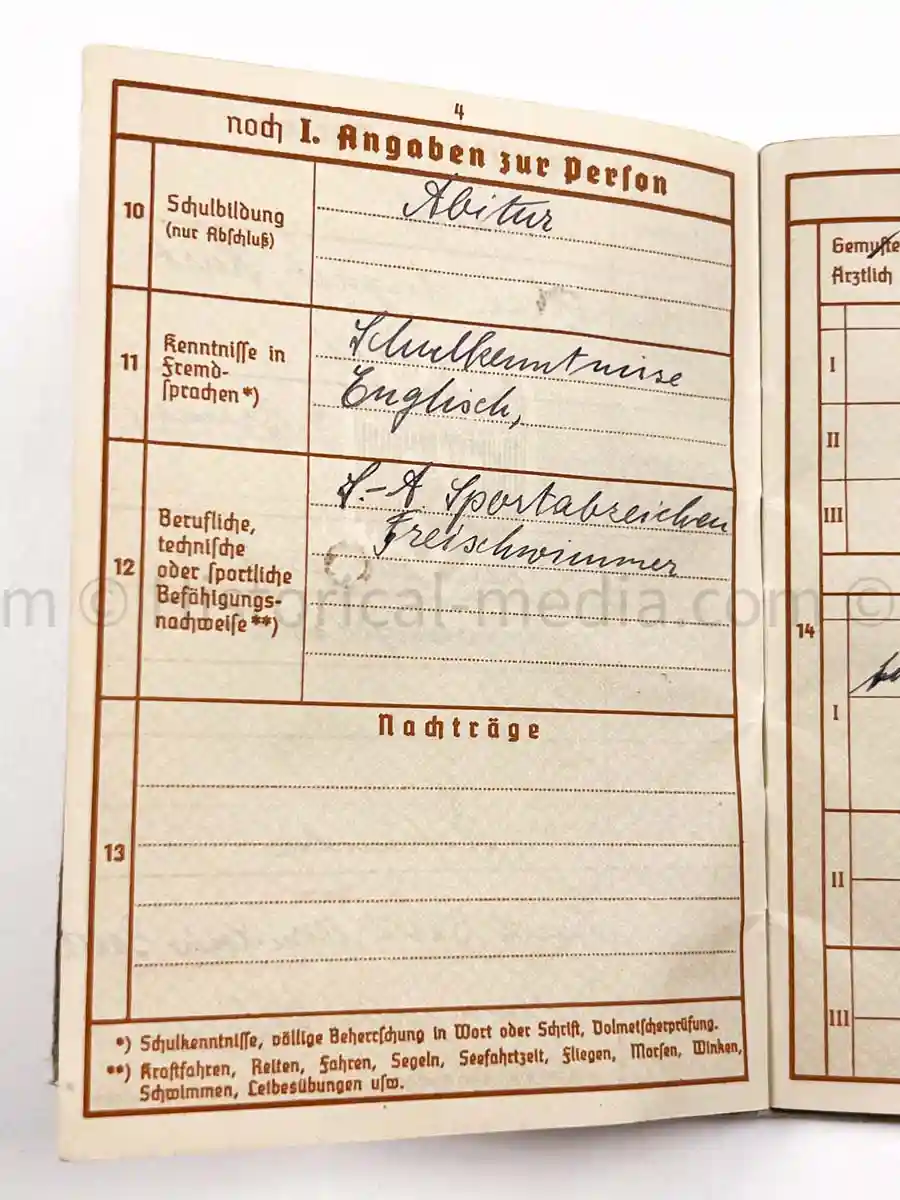 4
noch I. Angaben zur Person
10
Schulbildung
(nur Abschluß)
Abitur
11
Kenntnisse in
Fremd-
sprachen*)
Schulkenntnisse
Englisch,
12
Berufliche,
technische
oder sportliche
Befähigungs-
nachweise**)
S.-A. Sportabzeichen
Freischwimmer
Nachträge
13
*) Schulkenntnisse, völlige Beherrschung in Wort oder Schrift, Dolmetscherprüfung.
**) Kraftfahren, Reiten, Fahren, Segeln, Seefahrtzeit, Fliegen, Morsen, Winken,
Schwimmen, Leibesübungen usw.
Ärztlich
I
II
III
14
I
II
III
m © historical-media.com ©